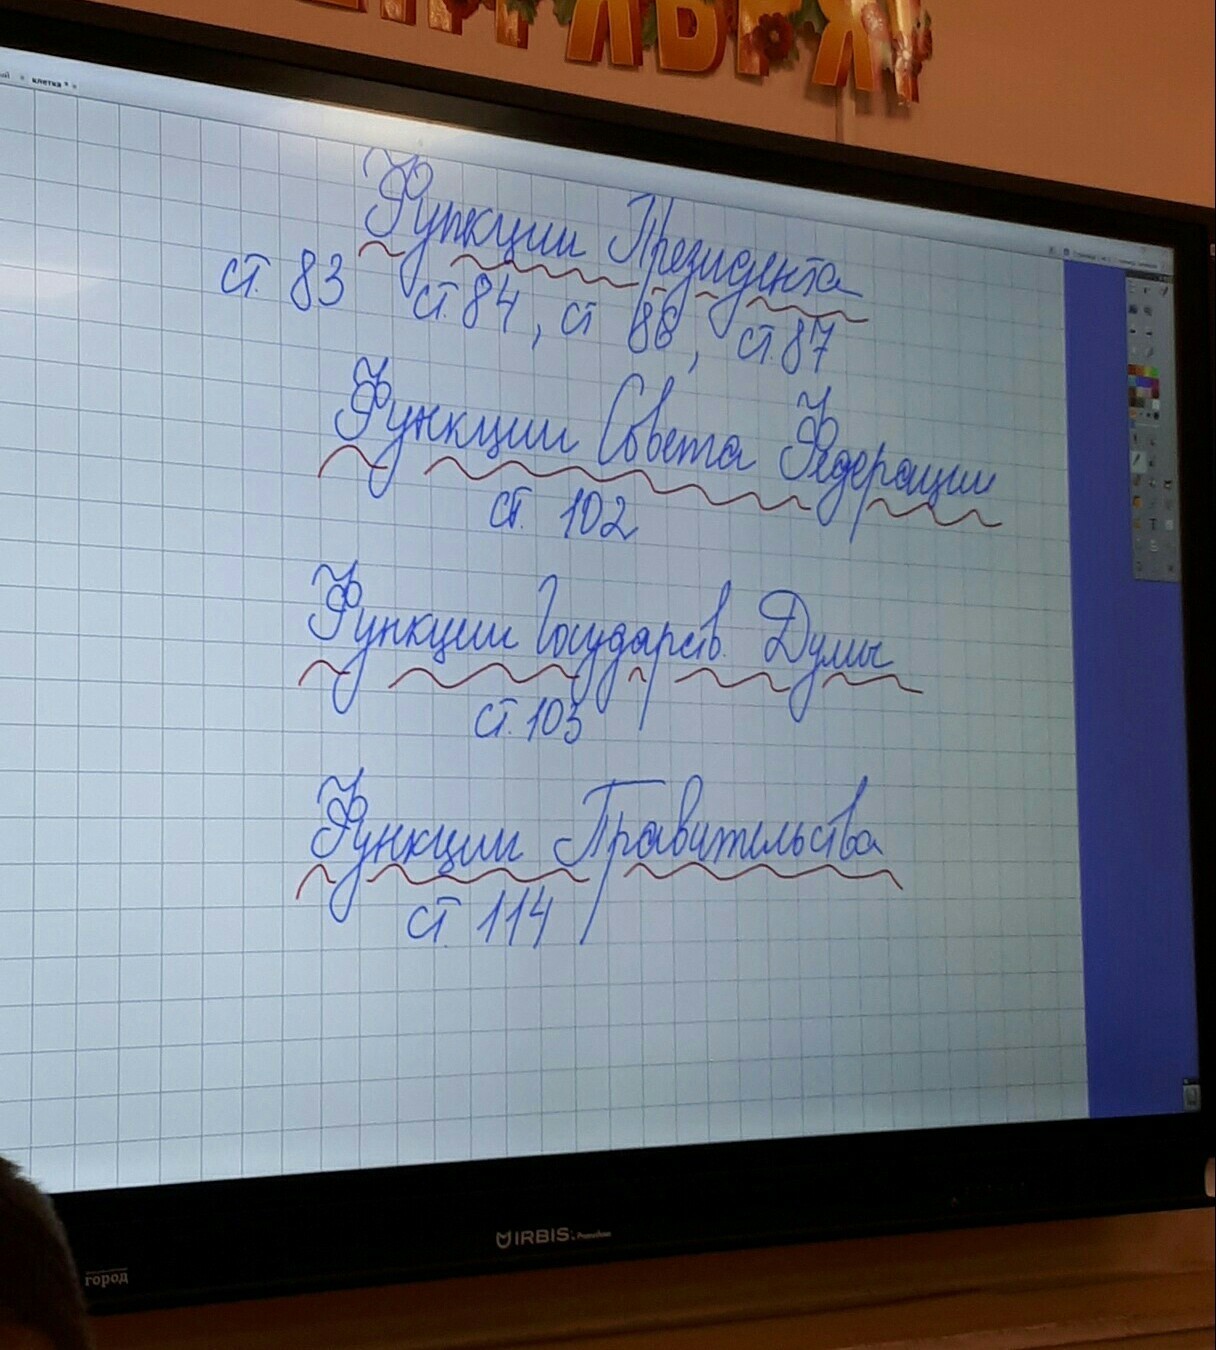 клетка *
Функции Президента
ст. 83 ст. 84, ст 86, ст. 87
Функции Совета Федерации
ст. 102
Функции Государств. Думы
ст. 103
Функции Правительства
ст. 114
IRBIS
город